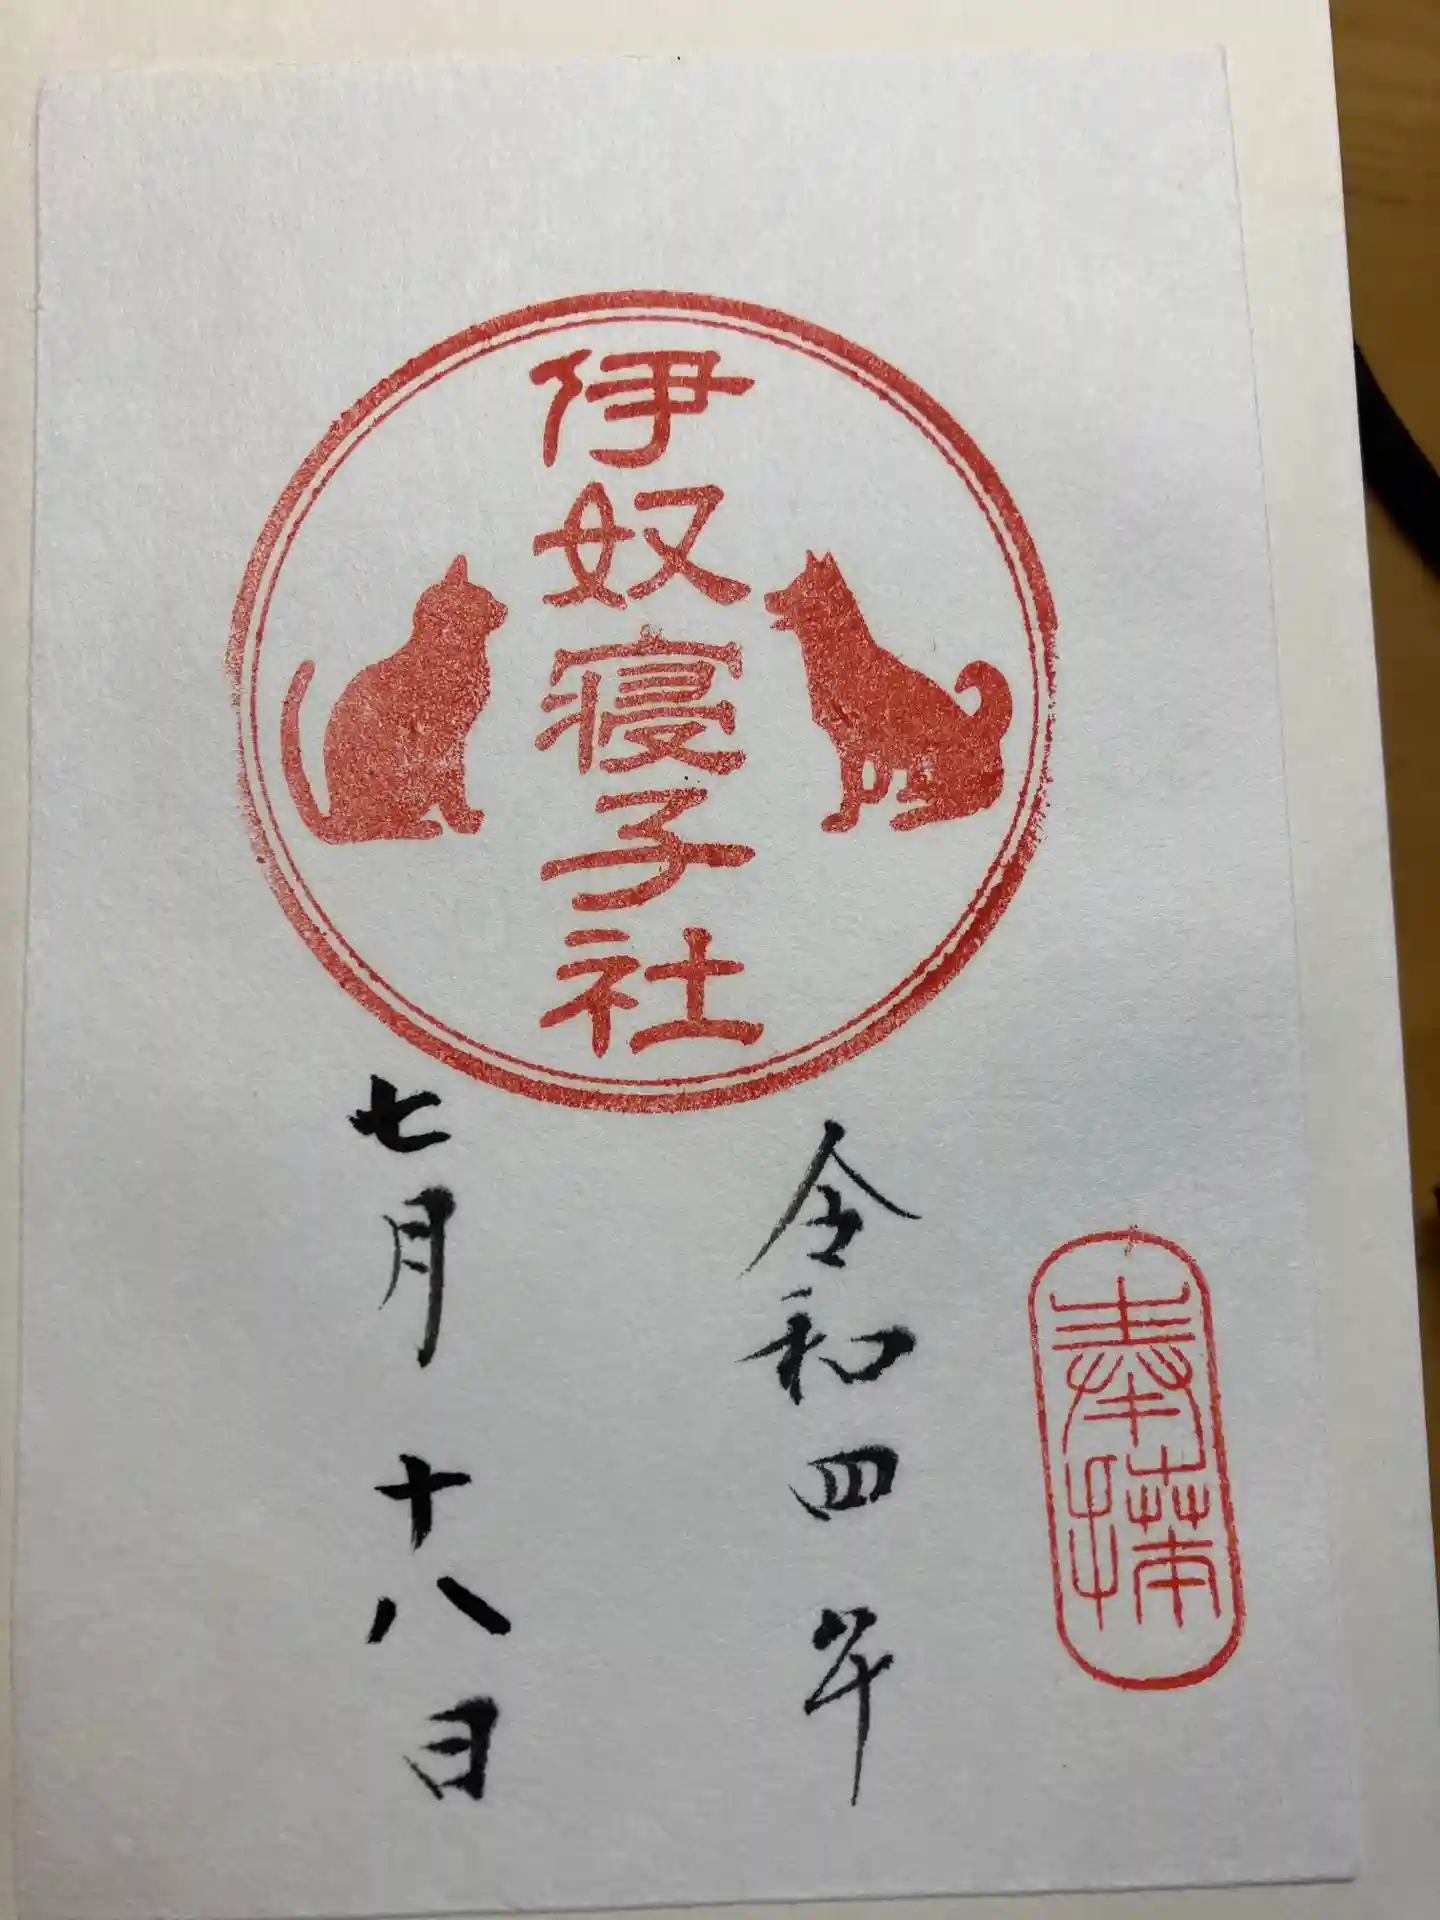 奉拝
伊奴寝子社
令和四年
七月十八日